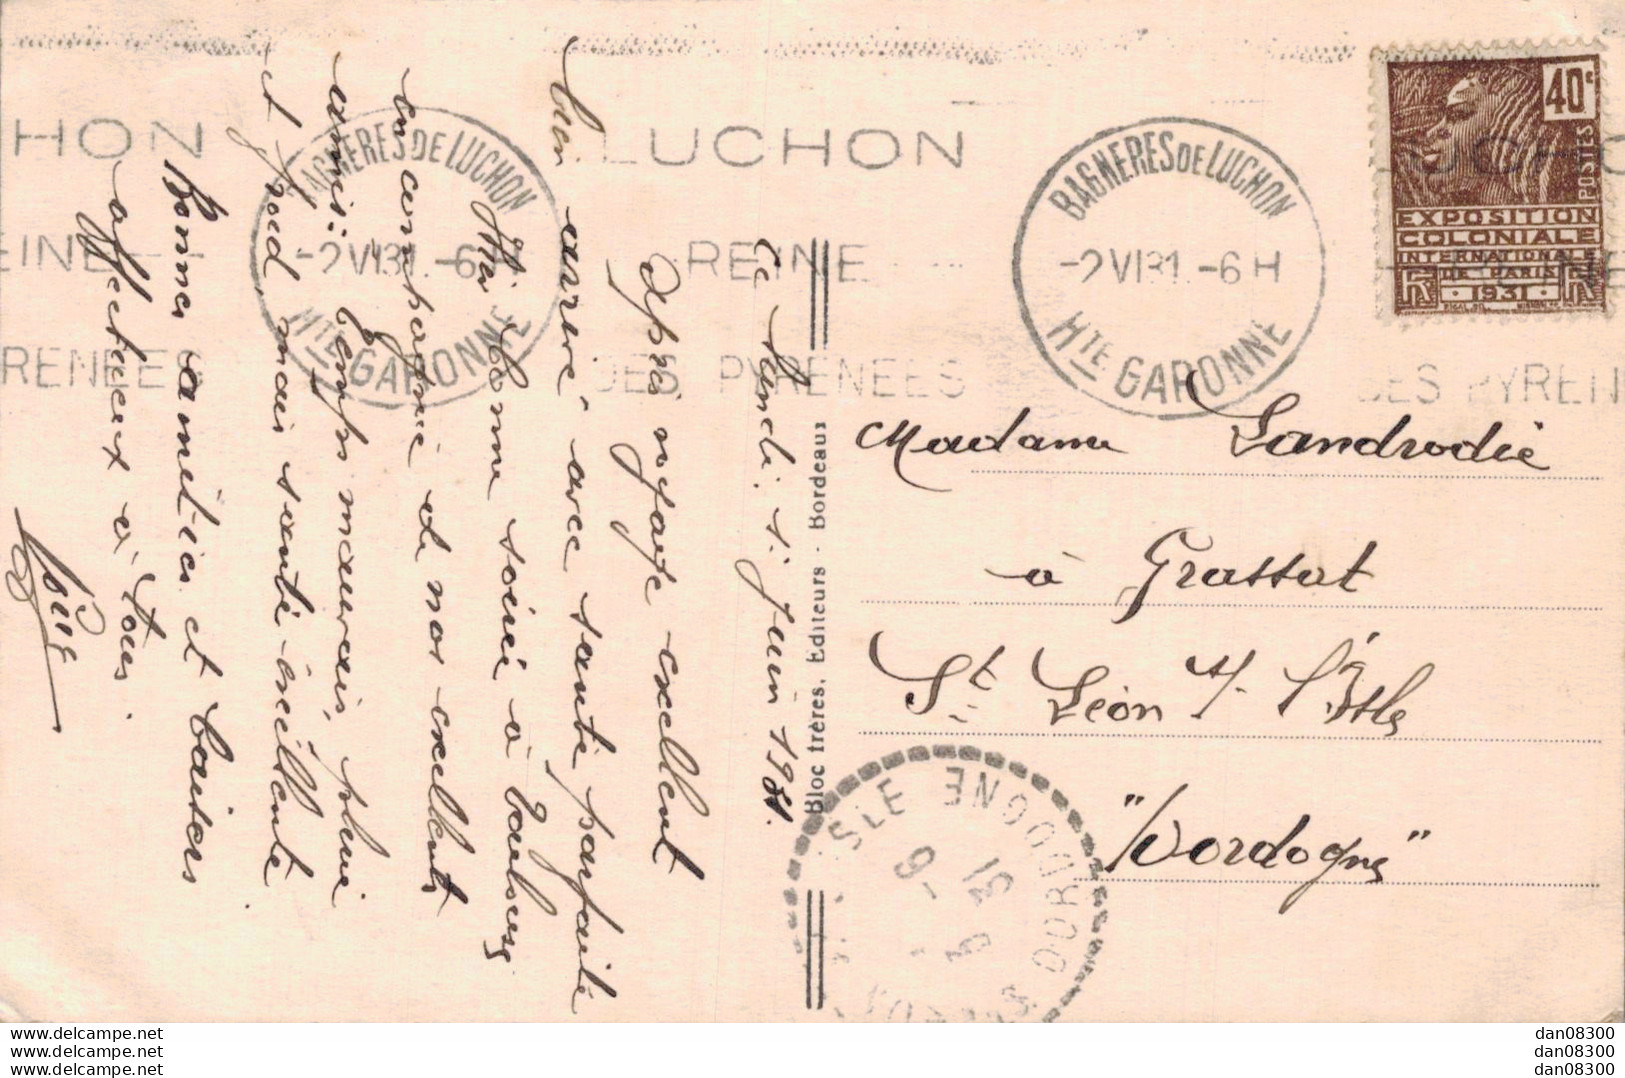 Ce Lundi. 1. juin 1931.
Après voyage excellent
bien arrivé avec santé parfaite
Hier bonne soirée à
en compagnie de nos excellents
amis: temps mauvais, pluie
et froid, mais santé excellente
Bonnes amitiés et baisers
affectueux à tous.
LUCHON
REINE
DES PYRENEES
HON
EINE
RENEES
BAGNERES DE LUCHON
-2 VI 31. -6 H
HTE GARONNE
BAGNERES DE LUCHON
-2 VI 31. -6 H
HTE GARONNE
DES PYREN
40c
POSTES
EXPOSITION
COLONIALE
INTERNATIONALE
DE PARIS
RF 1931 RF
Madame Landrodie
à Grassat
St Léon s/ l'Isle
"Dordogne"
Bloc frères, Editeurs - Bordeaux
SLE DORDOGNE
31
dan08300
dan08300
dan08300
dan08300
dan08300
dan08300